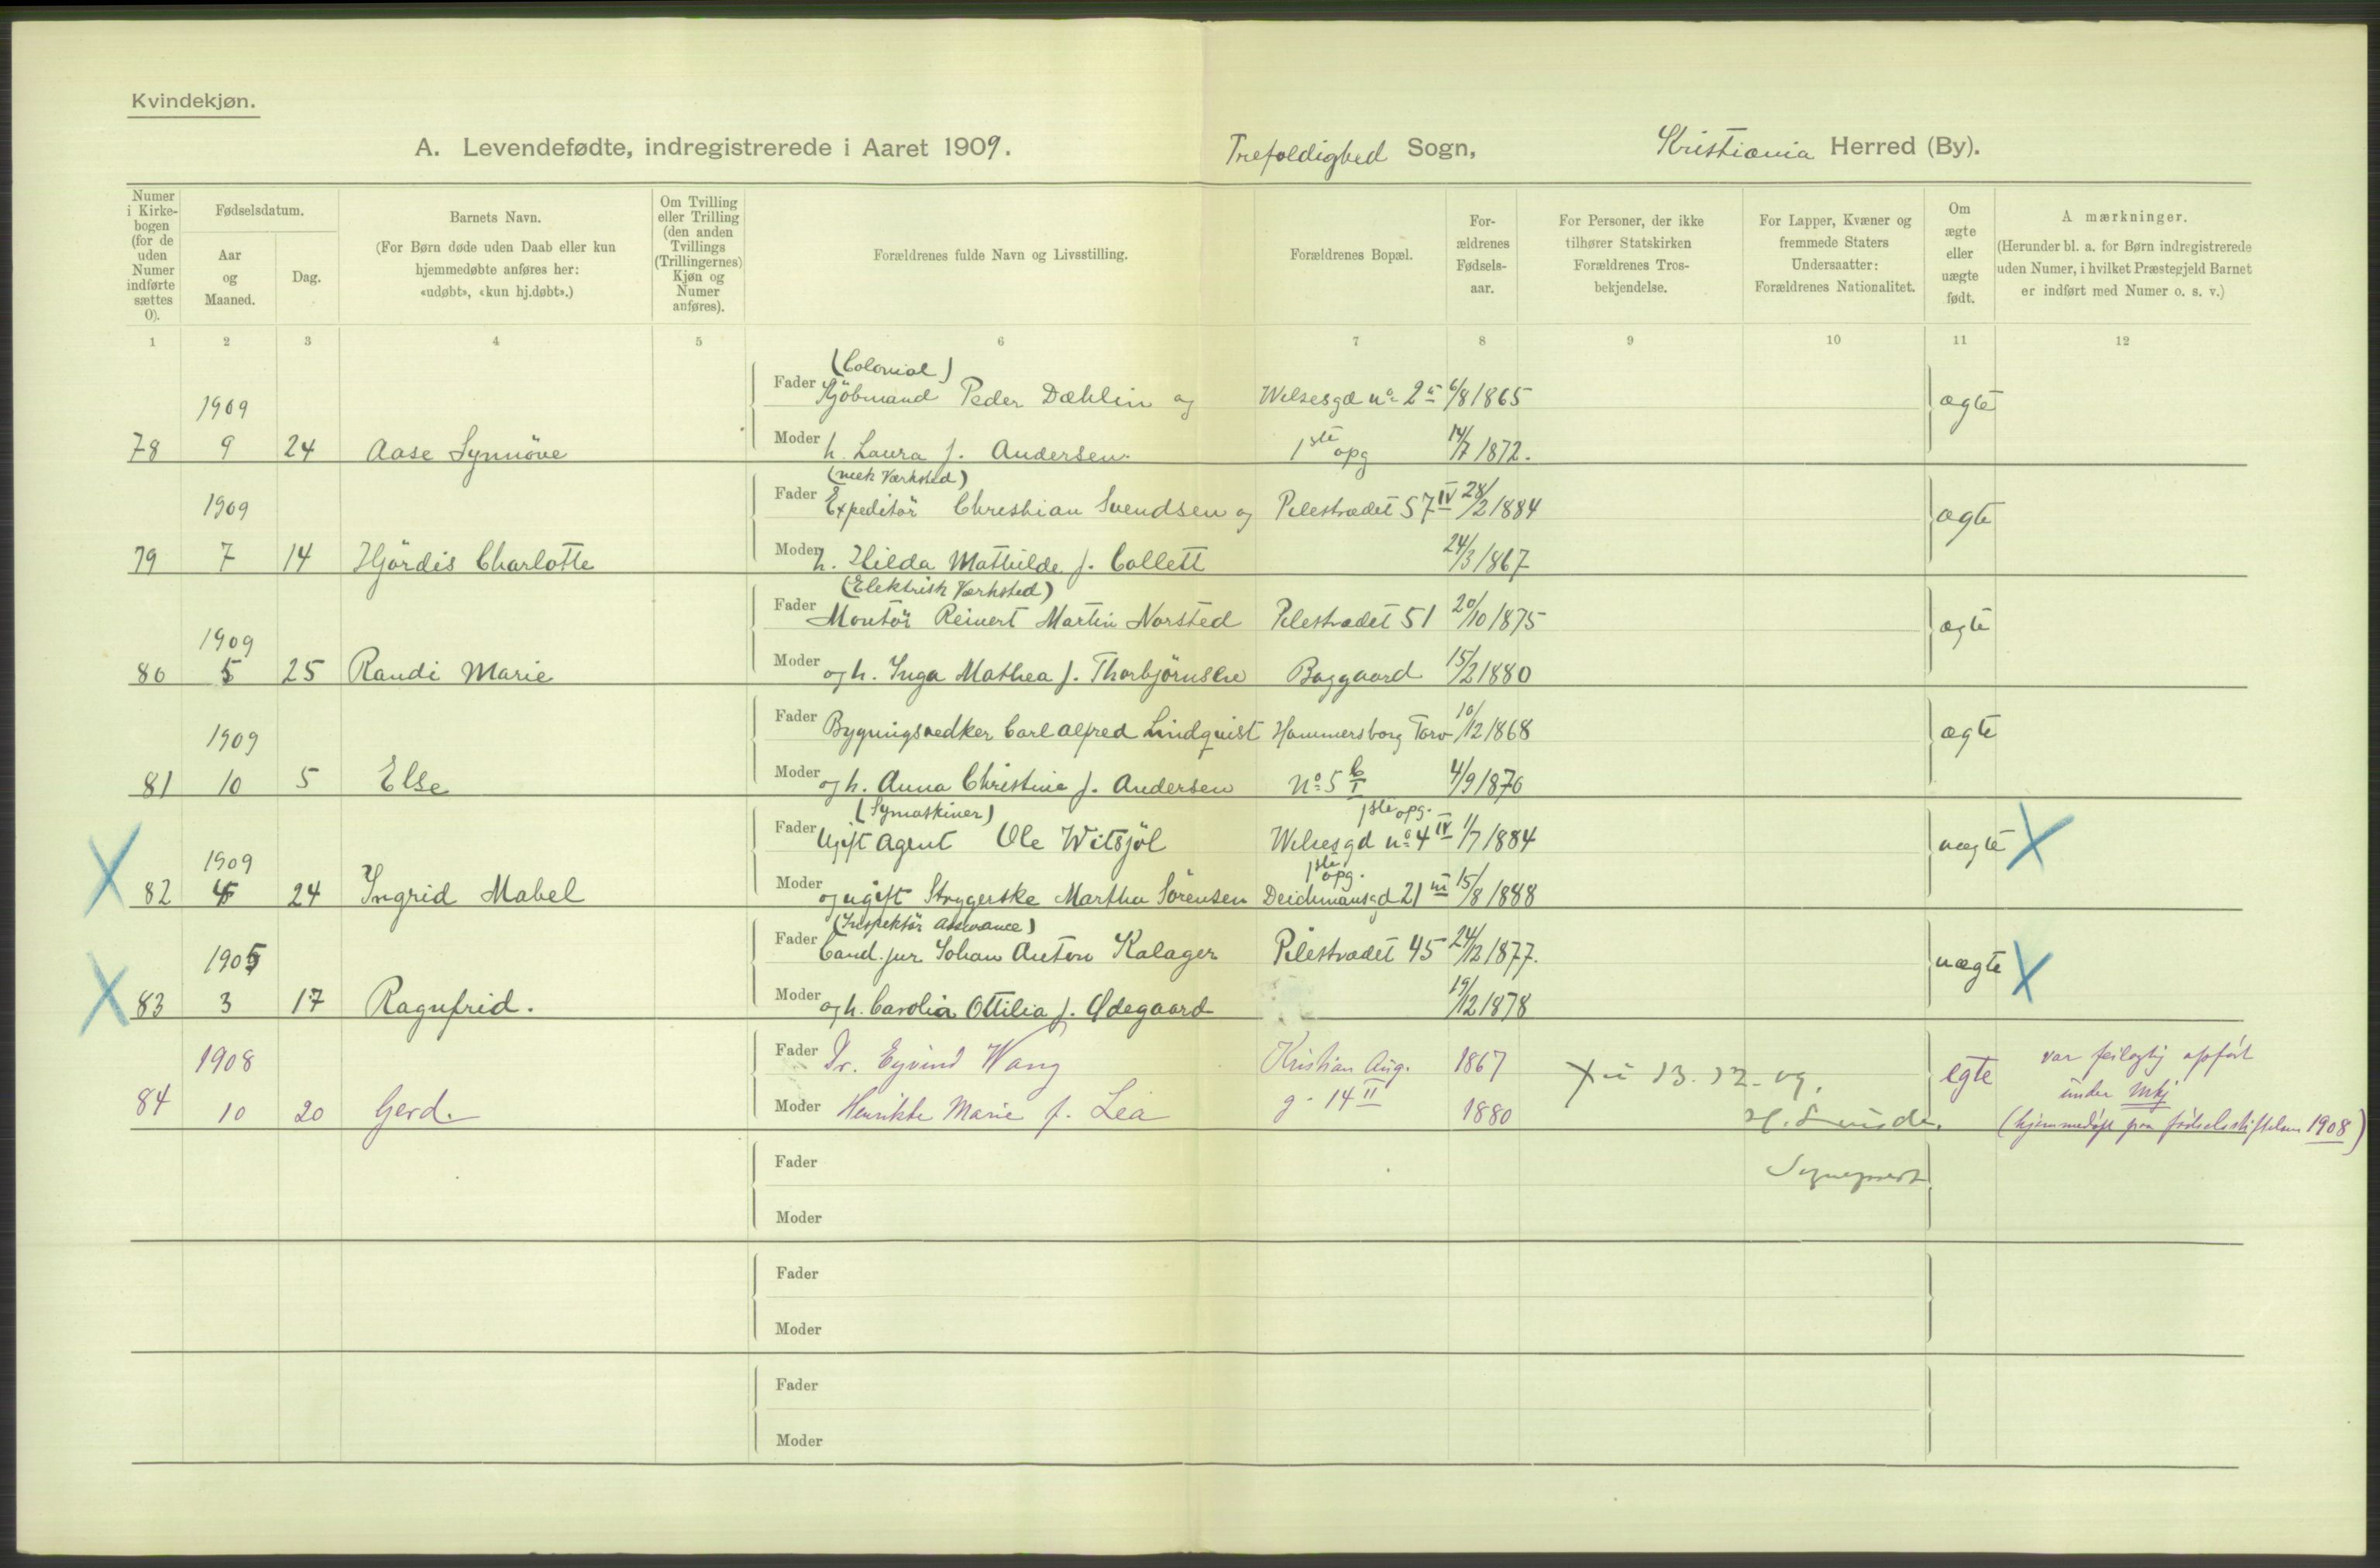 Kvindekjøn.
A. Levendefødte, indregistrerede i Aaret 1909. Trefoldighed Sogn, Kristiania Herred (By).
Numer i Kirkebogen (for de uden Numer indførte sættes 0).
Fødselsdatum.
Aar og Maaned.
Dag.
Barnets Navn.
(For Børn døde uden Daab eller kun hjemmedøbte anføres her: «udøbt», «kun hj.døbt».)
Om Tvilling eller Trilling (den anden Tvillings (Trillingernes) Kjøn og Numer anføres).
Forældrenes fulde Navn og Livsstilling.
Forældrenes Bopæl.
Forældrenes Fødselsaar.
For Personer, der ikke tilhører Statskirken Forældrenes Trosbekjendelse.
For Lapper, Kvæner og fremmede Staters Undersaatter: Forældrenes Nationalitet.
Om ægte eller uægte født.
Anmærkninger.
(Herunder bl. a. for Børn indregistrerede uden Numer, i hvilket Præstegjeld Barnet er indført med Numer o. s. v.)
1 2 3 4 5 6 7 8 9 10 11 12
(Colonial)
1909 Fader Kjöbmand Peder Dæhlin og Welsesgd no 2 6/8 1865 ægte
78 9 24 Aase Synnöve Moder h. Laura f. Andersen 1ste opg 14/7 1872.
(mek Værksted)
1909 Fader Expeditör Christian Svendsen og Pilestrædet 57 IV 28/2 1884 ægte
79 7 14 Hjördis Charlotte Moder h. Hilda Mathilde f. Collett 24/3 1867
(Elektrisk Værksted)
1909 Fader Montör Reinert Martin Norsted Pilestrædet 51 20/10 1875 ægte
80 5 25 Randi Marie Moder og h. Inga Mathea f. Thorbjörnsen Baggaard 15/2 1880
1909 Fader Bygningssnedker Carl Alfred Lindquist Hammersborg Torv 10/12 1868 ægte
81 10 5 Else Moder og h. Anna Christine f. Andersen No 5 b I 4/9 1870
(Symaskiner) 1ste opg.
1909 Fader Ugift Agent Ole Witsjöl Welsesgd no 4 IV 1/7 1884 uægte X
X 82 24 Ingrid Mabel Moder og ugift Strygerske Martha Sörensen Deichmansgd 21 III 1ste opg. 15/8 1888
(Inspektör Assurance)
1905 Fader Cand. jur. Johan Anton Kalager Pilestrædet 45 24/12 1877. uægte X
X 83 3 17 Ragnfrid. Moder og h. Carolia Ottilia f. Ødegaard 19/12 1878
1908 Fader Dr. Eyvind Wang Kristian Aug. 1867 13.12.09. egte var feilagtig opført under Mkj
84 10 20 Gerd. Moder Henrikke Marie f. Lea g. 14 II 1880 (hjemmedøpt paa fødselsstiftelsen 1908)
Sogneprest
Fader
Moder
Fader
Moder
Fader
Moder